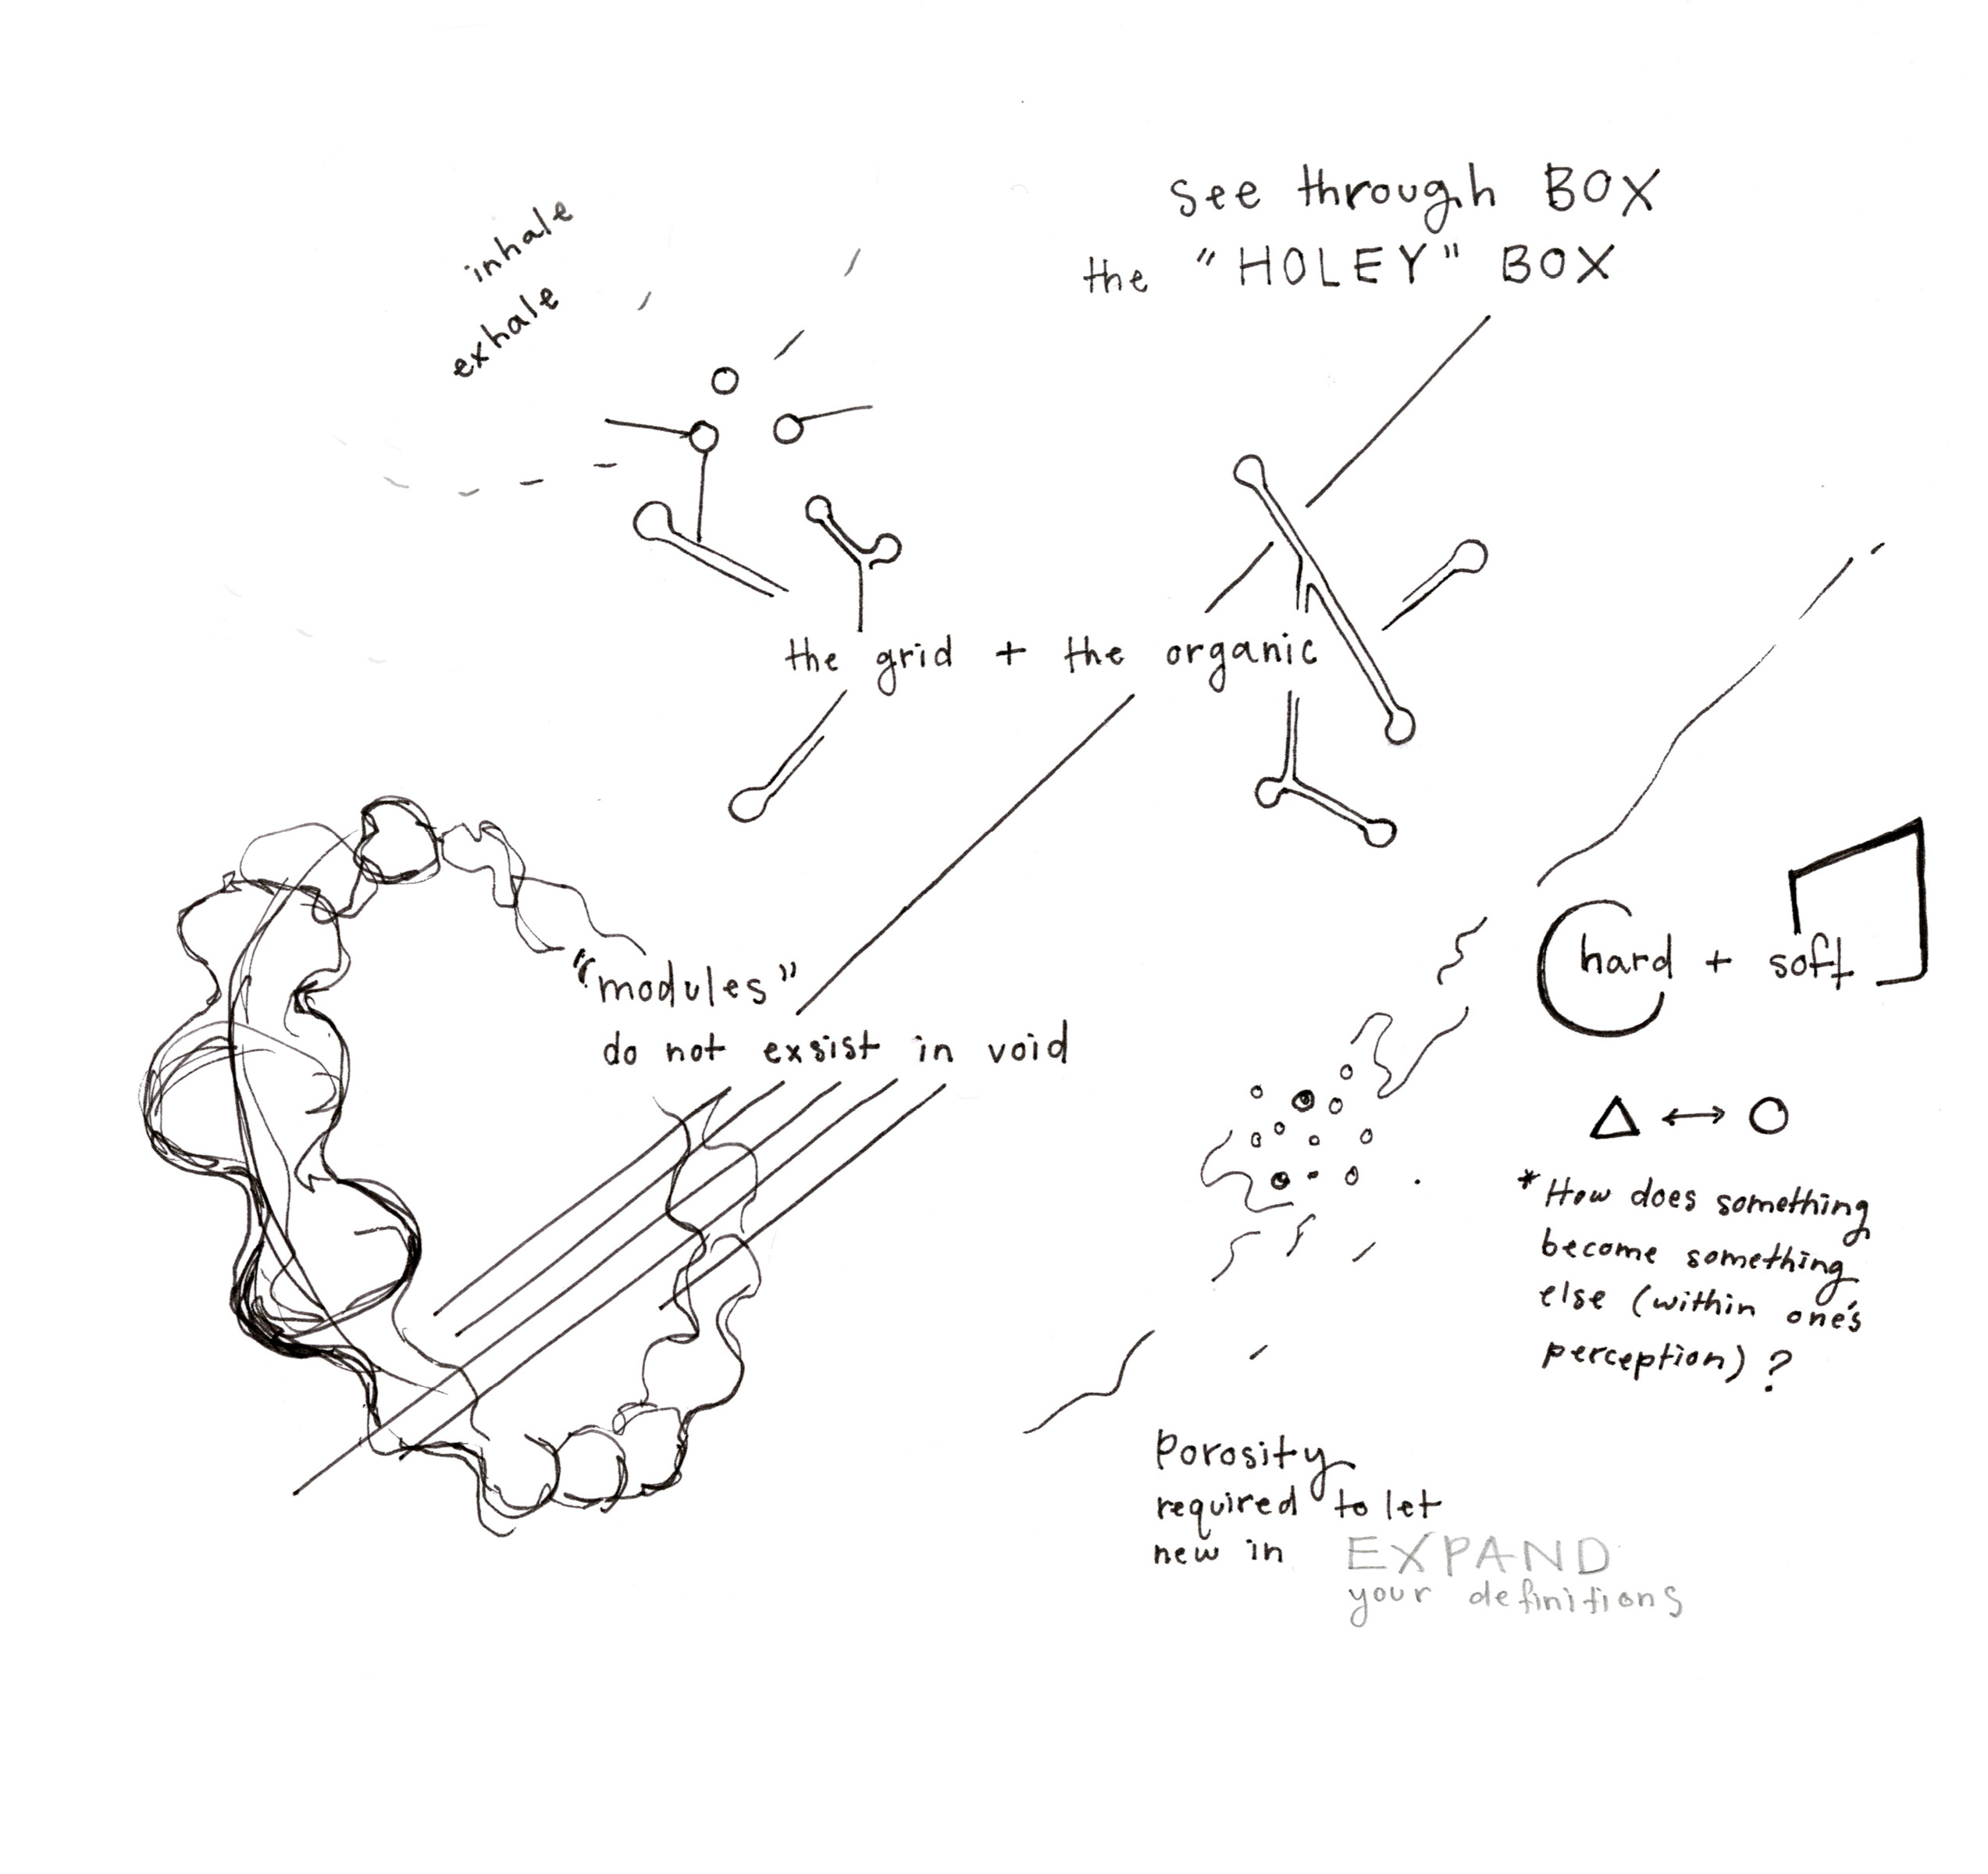 inhale
exhale
see through BOX
the "HOLEY" BOX
the grid + the organic
"modules"
do not exsist in void
hard + soft
△ ↔ ○
* How does something
become something
else (within one's
perception) ?
Porosity
required to let
new in
EXPAND
your definitions